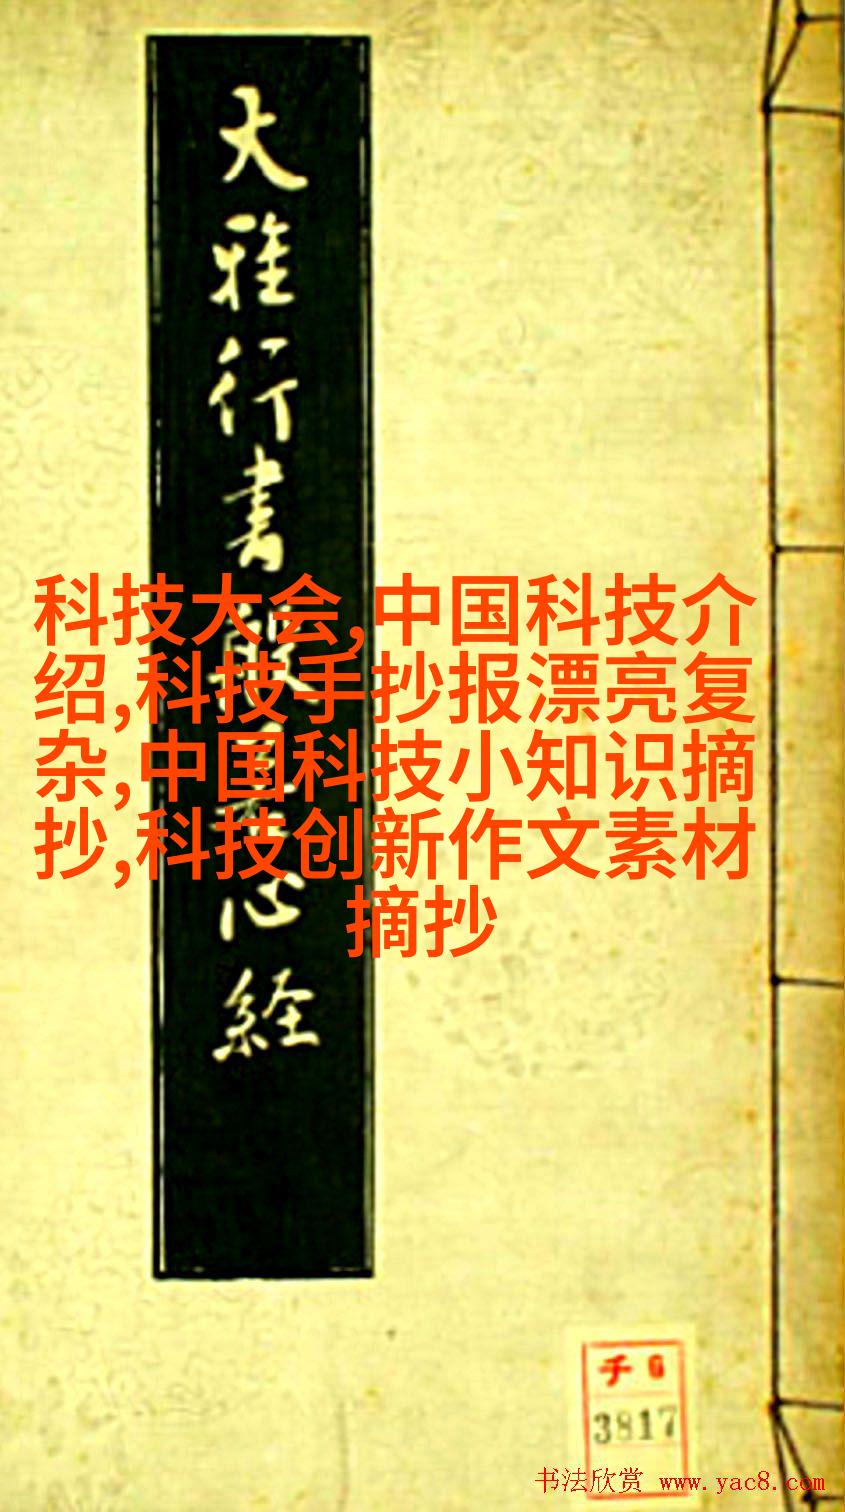 大雅行書般若心経
科技大会,中国科技介
绍,科技手抄报漂亮复
杂,中国科技小知识摘
抄,科技创新作文素材
摘抄
千 G
3817
书法欣赏 www.yac8.com